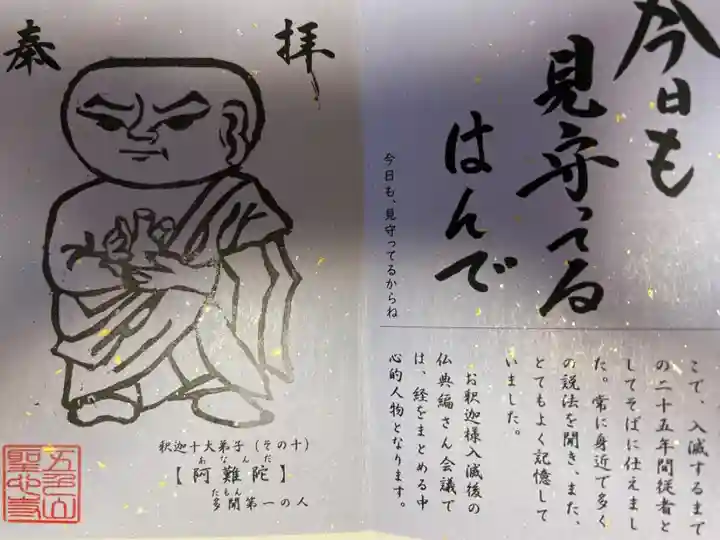 奉拝
今日も
見守ってる
はんで
今日も、見守ってるからね
こで、入滅するまで
の二十五年間従者と
してそばに仕えまし
た。常に身近で多く
の説法を聞き、また、
とてもよく記憶して
いました。
お釈迦様入滅後の
仏典編さん会議で
は、経をまとめる中
心的人物となります。
釈迦十大弟子（その十）
【阿難陀】
あなんだ
多聞第一の人
たもん